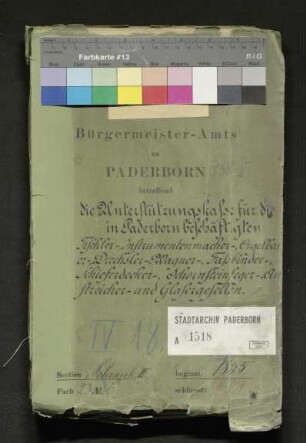 Farbkarte #13
B.I.G.
Bürgermeister-Amts
zu
PADERBORN
betreffend
die Unterstützungskasse für die
in Paderborn beschäftigten
Tischler-, Instrumentenmacher-, Orgelbau-
er-, Drechsler-, Wagner-, Faßbinder-,
Schieferdecker-, Schornsteinfeger-, An-
streicher- und Glasergesellen.
IV 18
STADTARCHIV PADERBORN
A 1518
Section
beginnt 1855
Fach
schliesst